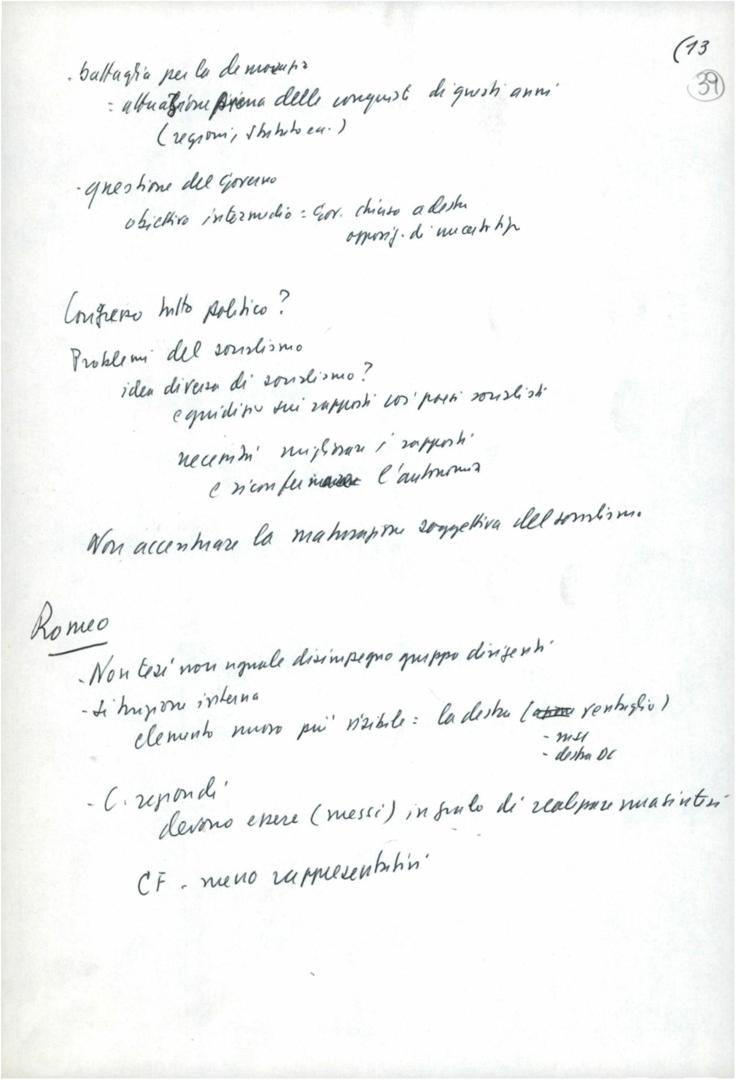 (13
39
. battaglia per la democrazia
= attuazione piena delle conquiste di questi anni
(regioni, statuto ecc.)
- questione del Governo
obiettivo intermedio = Gov. chiuso a destra
opposiz. di nuovo tipo
Congresso tutto politico?
Problemi del socialismo
idea diversa di socialismo?
e giudizio sui rapporti coi paesi socialisti
necessità migliorare i rapporti
e riconfermare l'autonomia
Non accentuare la maturazione soggettiva del socialismo.
Romeo
- Non tesi non uguale disimpegno gruppo dirigenti
- situazione interna
elemento nuovo più visibile = la destra (ventaglio)
- msi
- destra DC
- C. regionali
devono essere (messi) in grado di realizzare una sintesi
CF - meno rappresentativi